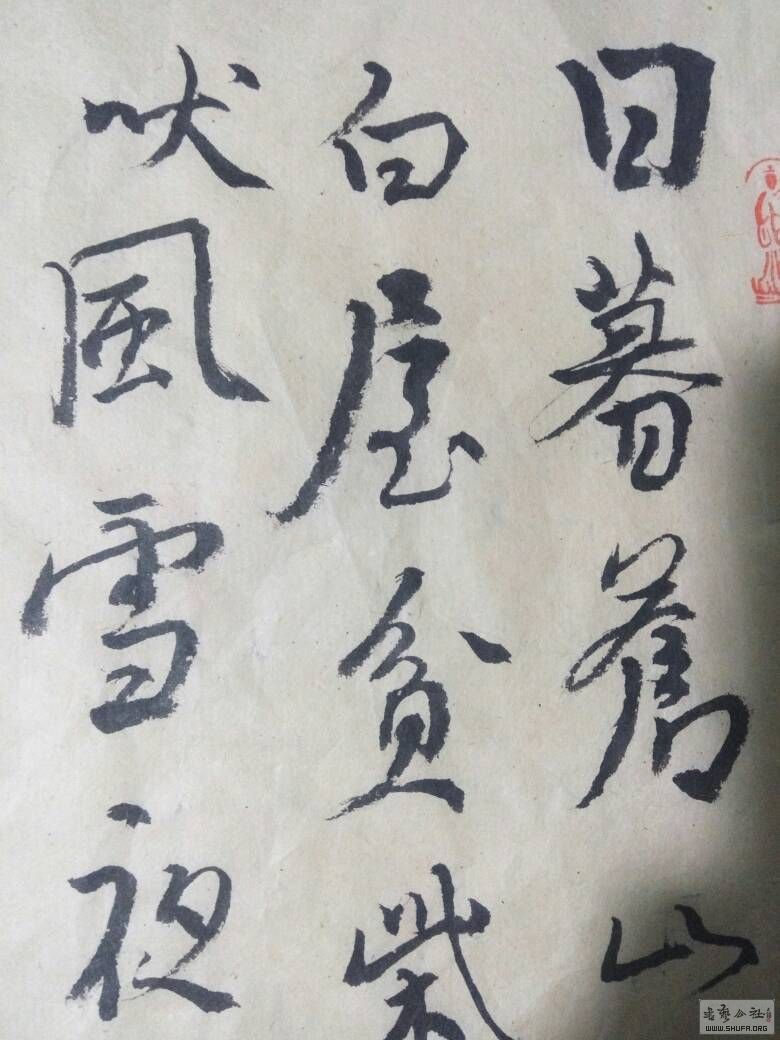 日暮蒼山
白屋貧柴
吠風雪夜
書藝公社
WWW.SHUFA.ORG